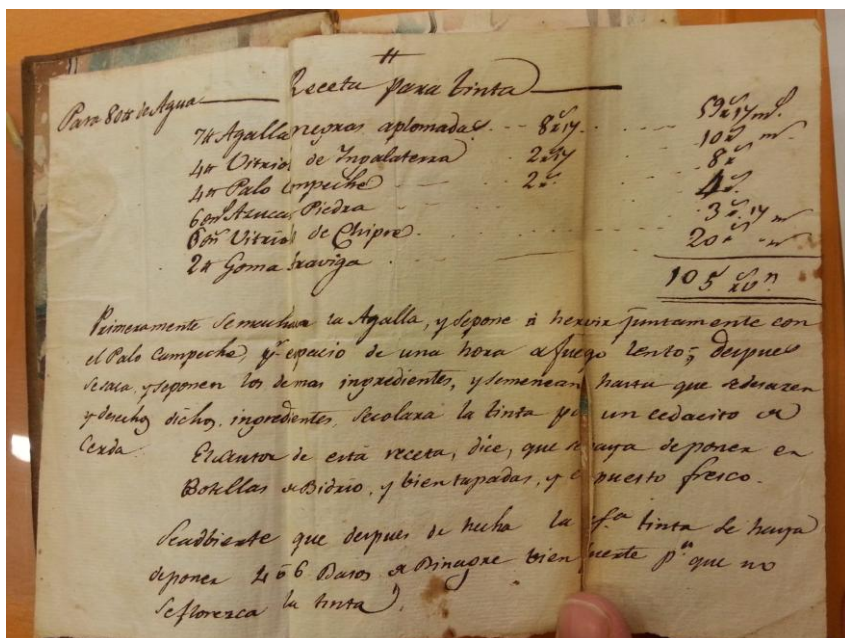 Receta para tinta
Para 80 tt de Agua
7 tt Agallas negras aplomadas. - - 8 rs 17. - - - 59 rs 17 ms.
4 tt Vitriol de Ingalaterra - - 2 rs 17 - - - 10 rs ms
4 tt Palo Campeche - - 2 rs. - - - 8 rs
6 onz Azucar Piedra - - - 4 rs.
6 onz Vitriol de Chipre. - - - 3 rs. 17 ms
2 tt Goma Araviga - - - 20 rs - ms
105 rs von.
Primeramente se machara la Agalla, y se pone á hervir juntamente con
el Palo Campeche, pr espacio de una hora a fuego lento; despues
se saca, y se ponen los demas ingredientes, y se menean hasta que se desazen
y desechos dichos ingredientes, se colara la tinta por un cedacito de
Cerda. El Autor de está receta, dice, que se haya de poner en
Botellas de Bidrio, y bien tapadas, y en puesto fresco.
Se adbierte que despues de hecha la tinta se haya
de poner 4 ó 6 Basos de Binagre bien fuerte pa. que no
se florezca la tinta